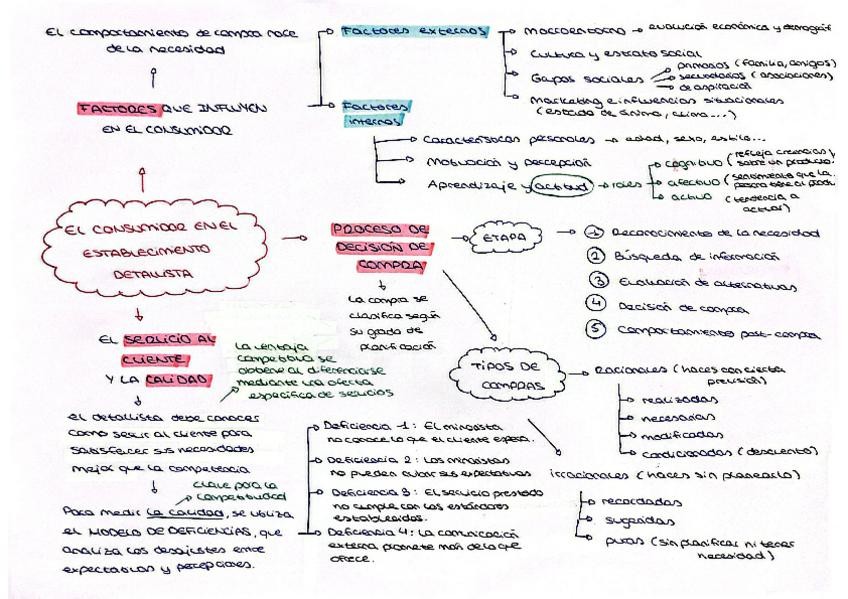 El comportamiento de compra nace
de la necesidad
FACTORES QUE INFLUYEN
EN EL CONSUMIDOR
Factores externos
Macroentorno → evolución económica y demográf
Cultura y estrato social
Grupos sociales
primarios (familia, amigos)
secundarios (asociaciones)
de aspiración
Marketing e influencias situacionales
(estado de ánimo, clima...)
Factores
internos
Características personales → edad, sexo, estilo...
Motivación y percepción
Aprendizaje y actitud → roles
cognitivo (refleja creencias
sobre un producto.
afectivo (sentimiento que la
persona tiene al produ
activo (tendencia a
actuar)
EL CONSUMIDOR EN EL
ESTABLECIMIENTO
DETALLISTA
PROCESO DE
DECISIÓN DE
COMPRA
La compra se
clasifica según
su grado de
planificación
ETAPA
1 Reconocimiento de la necesidad
2 Búsqueda de información
3 Evaluación de alternativas
4 Decisión de compra
5 Comportamiento post-compra
TIPOS DE
COMPRAS
Racionales (haces con cierta
previsión)
realizadas
necesarias
modificadas
condicionadas (descuento)
irracionales (haces sin planearlo)
recordadas
sugeridas
puras (sin planificar ni tener
necesidad)
EL SERVICIO AL
CLIENTE
Y LA CALIDAD
La ventaja
competitiva se
obtiene al diferenciarse
mediante una oferta
específica de servicios
El detallista debe conocer
como servir al cliente para
satisfacer sus necesidades
mejor que la competencia
clave para la
competitividad
Para medir la calidad, se utiliza
el MODELO DE DEFICIENCIAS, que
analiza los desajustes entre
expectativas y percepciones.
Deficiencia 1: El minorista
no conoce lo que el cliente espera.
Deficiencia 2: Los minoristas
no pueden cubrir sus expectativas
Deficiencia 3: El servicio prestado
no cumple con los estándares
establecidos.
Deficiencia 4: La comunicación
externa promete más de lo que
ofrece.